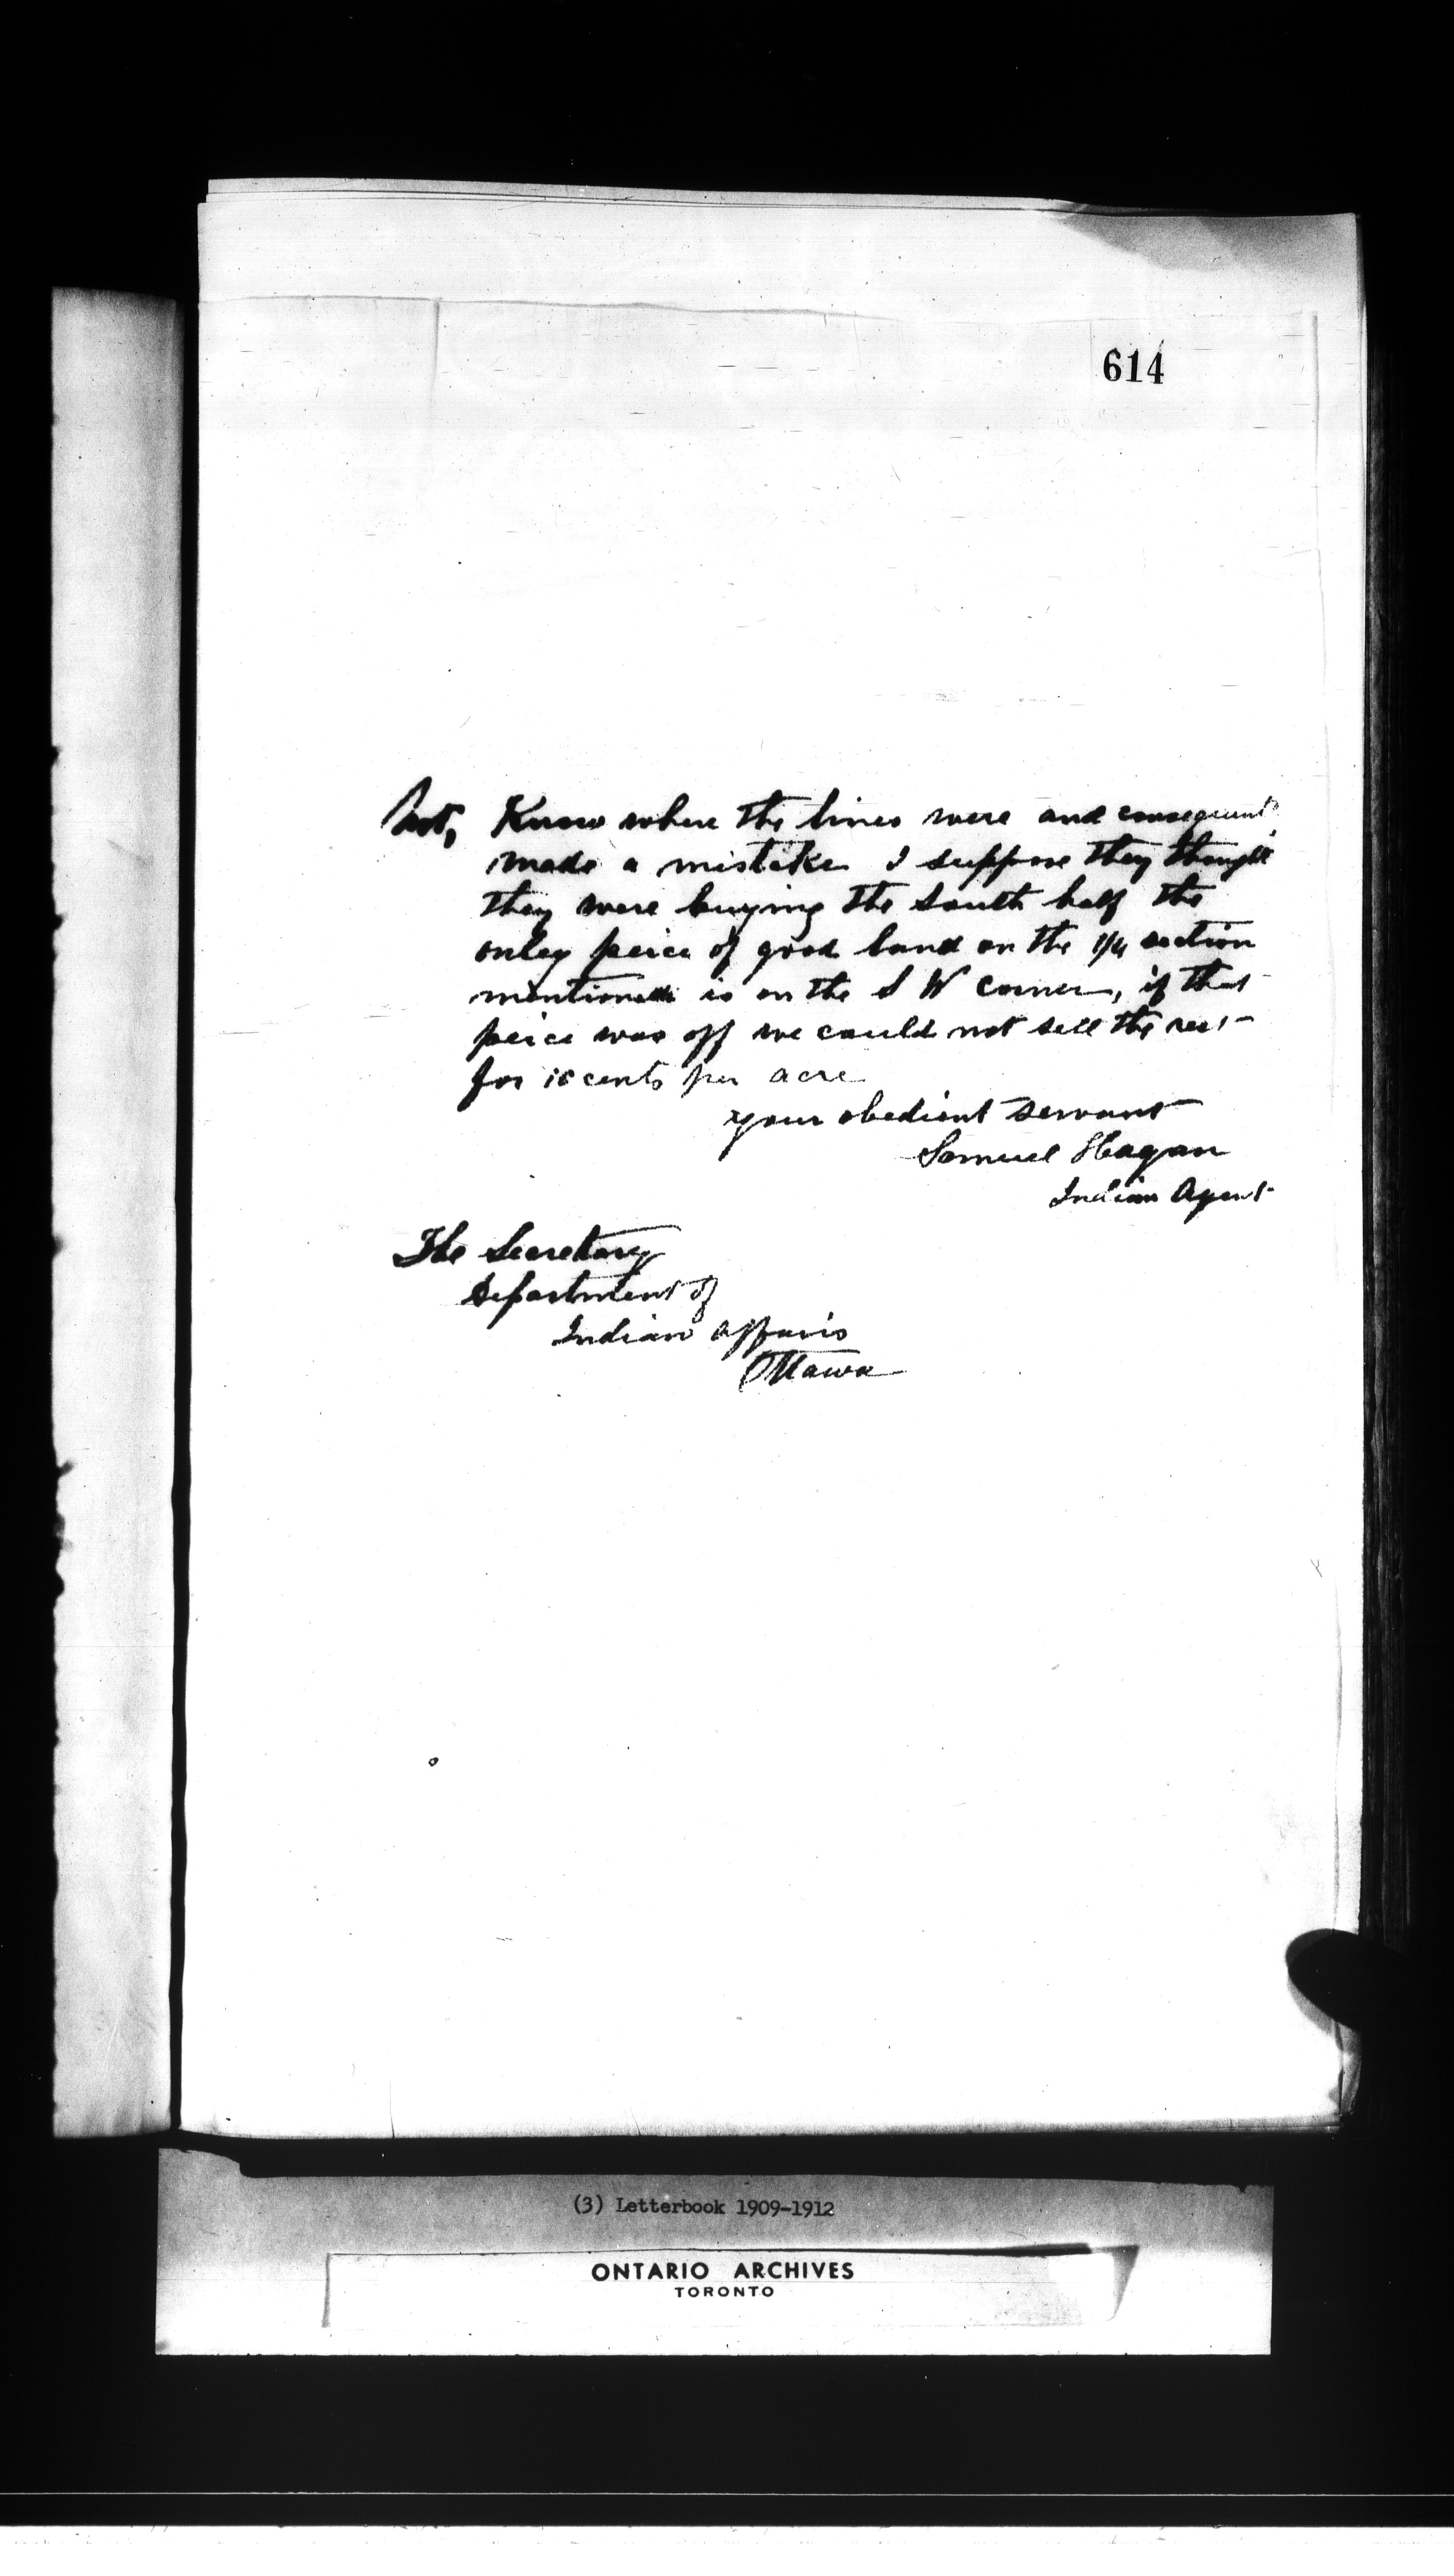 614
Not, Know where the lines were and consequent
made a mistake I suppose they thought
they were buying the South half the
onley peice of good land on the 1/4 section
mentioned is on the S W Corner, if that
peice was off we could not sell the rest
for 10 cents per acre
your obedient servant
Samuel Hagan
Indian Agent
The Secretary
Department of
Indian Affairs
Ottawa
(3) Letterbook 1909-1912
ONTARIO ARCHIVES
TORONTO